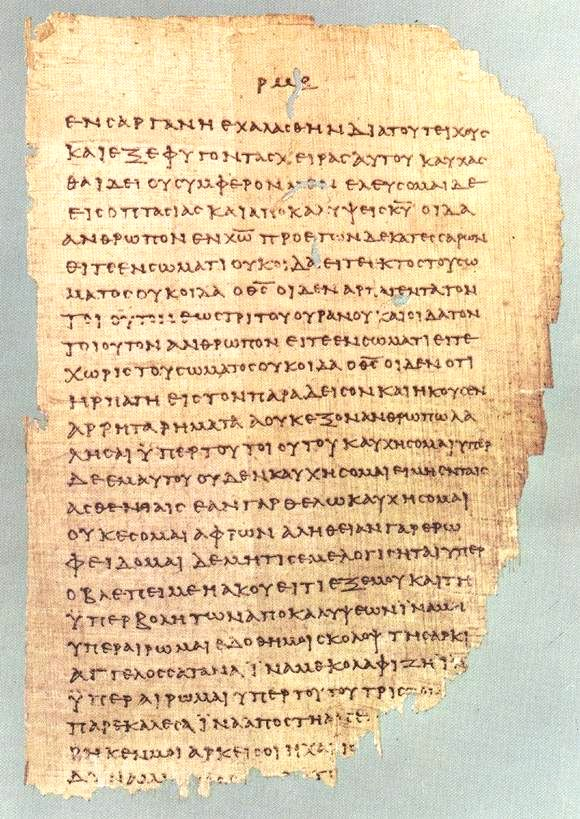 ΡΜΕ
ΕΝ ΣΑΡΓΑΝΗ ΕΧΑΛΑΣΘΗΝ ΔΙΑ ΤΟΥ ΤΕΙΧΟΥΣ
ΚΑΙ ΕΞΕΦΥΓΟΝ ΤΑΣ ΧΕΙΡΑΣ ΑΥΤΟΥ ΚΑΥΧΑΣ
ΘΑΙ ΔΕΙ ΟΥ ΣΥΜΦΕΡΟΝ ΕΛΕΥΣΟΜΑΙ ΔΕ
ΕΙΣ ΟΠΤΑΣΙΑΣ ΚΑΙ ΑΠΟΚΑΛΥΨΕΙΣ Κ̅Υ̅ ΟΙΔΑ
ΑΝΘΡΩΠΟΝ ΕΝ Χ̅Ω̅ ΠΡΟ ΕΤΩΝ ΔΕΚΑΤΕΣΣΑΡΩΝ
ΕΙΤΕ ΕΝ ΣΩΜΑΤΙ ΟΥΚ ΟΙΔΑ ΕΙΤΕ ΕΚΤΟΣ ΤΟΥ ΣΩ
ΜΑΤΟΣ ΟΥΚ ΟΙΔΑ Ο Θ̅Σ̅ ΟΙΔΕΝ ΑΡΠΑΓΕΝΤΑ ΤΟΝ
ΤΟΙΟΥΤΟΝ ΕΩΣ ΤΡΙΤΟΥ ΟΥΡΑΝΟΥ ΚΑΙ ΟΙΔΑ ΤΟΝ
ΤΟΙΟΥΤΟΝ ΑΝΘΡΩΠΟΝ ΕΙΤΕ ΕΝ ΣΩΜΑΤΙ ΕΙΤΕ
ΧΩΡΙΣ ΤΟΥ ΣΩΜΑΤΟΣ ΟΥΚ ΟΙΔΑ Ο Θ̅Σ̅ ΟΙΔΕΝ ΟΤΙ
ΗΡΠΑΓΗ ΕΙΣ ΤΟΝ ΠΑΡΑΔΕΙΣΟΝ ΚΑΙ ΗΚΟΥΣΕΝ
ΑΡΡΗΤΑ ΡΗΜΑΤΑ Α ΟΥΚ ΕΞΟΝ ΑΝΘΡΩΠΩ ΛΑ
ΛΗΣΑΙ ΫΠΕΡ ΤΟΥ ΤΟΙΟΥΤΟΥ ΚΑΥΧΗΣΟΜΑΙ ΥΠΕΡ
ΔΕ ΕΜΑΥΤΟΥ ΟΥΔΕΝ ΚΑΥΧΗΣΟΜΑΙ ΕΙ ΜΗ ΕΝ ΤΑΙΣ
ΑΣΘΕΝΙΑΙΣ ΕΑΝ ΓΑΡ ΘΕΛΩ ΚΑΥΧΗΣΟΜΑΙ
ΟΥΚ ΕΣΟΜΑΙ ΑΦΡΩΝ ΑΛΗΘΕΙΑΝ ΓΑΡ ΕΡΩ
ΦΕΙΔΟΜΑΙ ΔΕ ΜΗ ΤΙΣ ΕΜΕ ΛΟΓΙΣΗΤΑΙ ΥΠΕΡ
Ο ΒΛΕΠΕΙ ΜΕ Η ΑΚΟΥΕΙ ΤΙ ΕΞ ΕΜΟΥ ΚΑΙ ΤΗ
ΫΠΕΡΒΟΛΗ ΤΩΝ ΑΠΟΚΑΛΥΨΕΩΝ ΪΝΑ ΜΗ
ΥΠΕΡΑΙΡΩΜΑΙ ΕΔΟΘΗ ΜΟΙ ΣΚΟΛΟΨ ΤΗ ΣΑΡΚΙ
ΑΓΓΕΛΟΣ ΣΑΤΑΝΑ ΪΝΑ ΜΕ ΚΟΛΑΦΙΖΗ ΪΝΑ
ΫΠΕΡΑΙΡΩΜΑΙ ΥΠΕΡ ΤΟΥΤΟΥ ΤΡΙΣ
ΠΑΡΕΚΑΛΕΣΑ ΪΝΑ ΑΠΟΣΤΗ
ΡΗΚΕΝ ΜΟΙ ΑΡΚΕΙ ΣΟΙ Η ΧΑΡΙΣ
ΔΥΝΑΜΙΣ